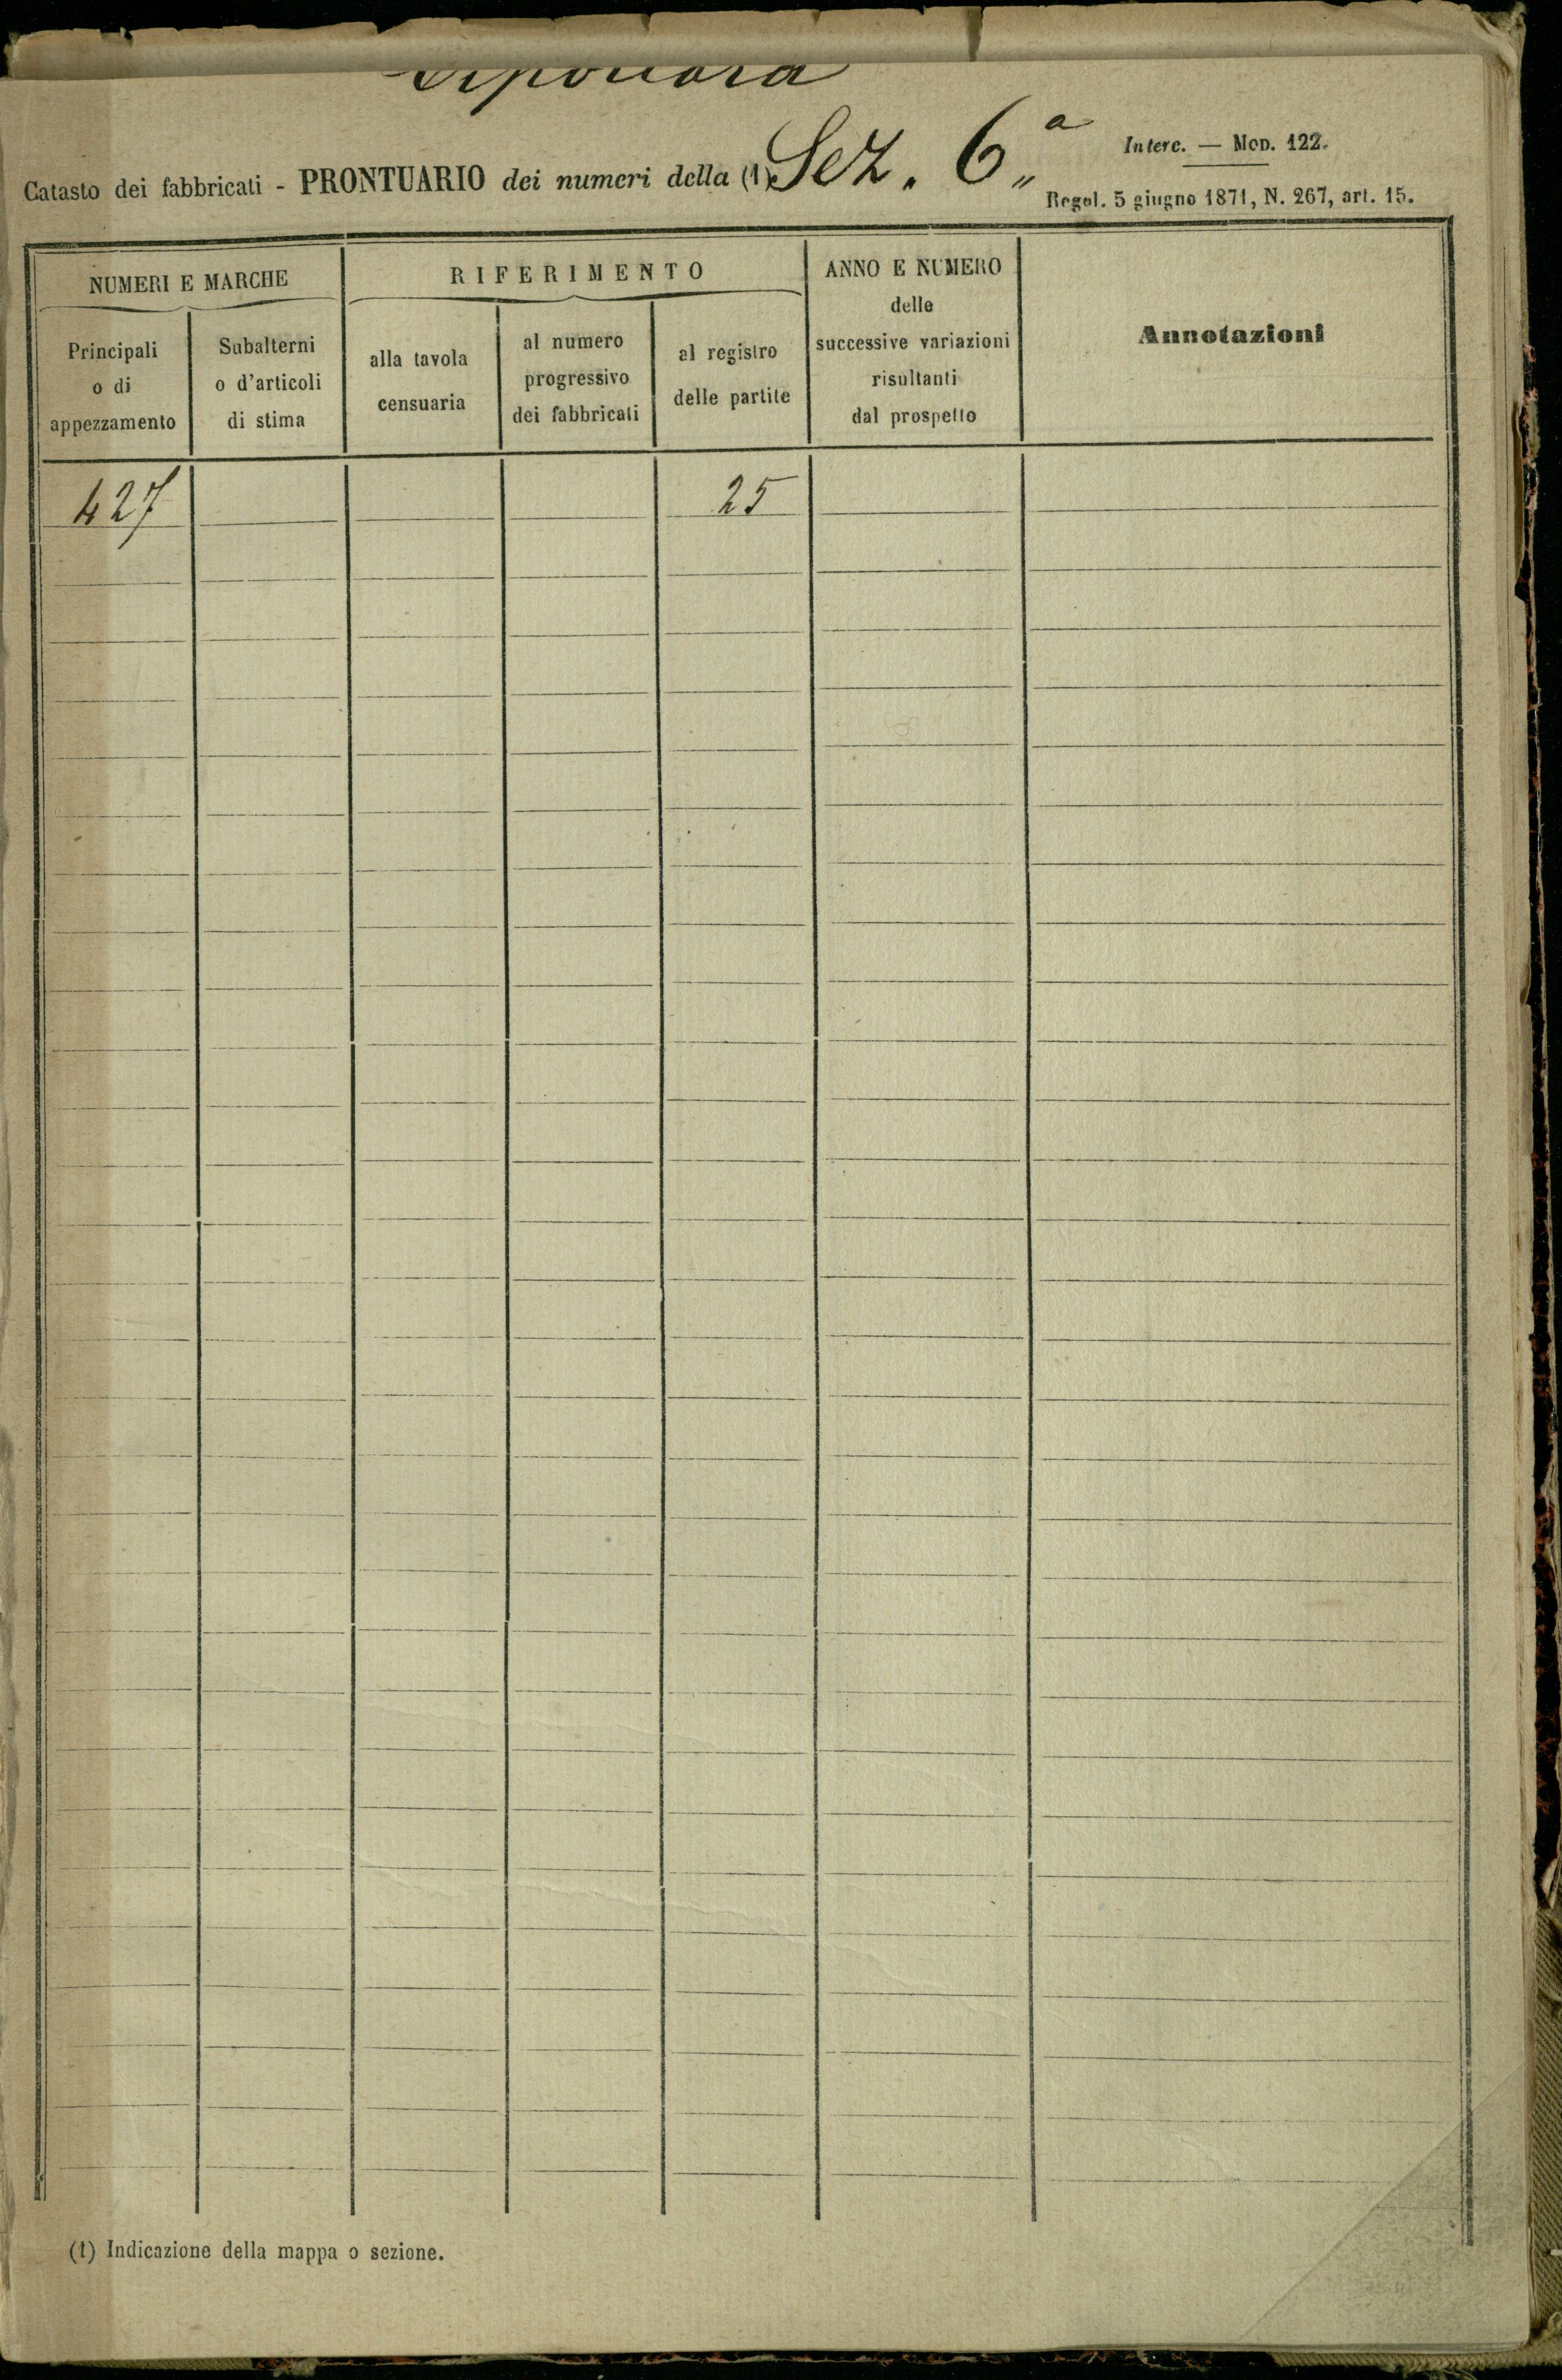 Catasto dei fabbricati - PRONTUARIO dei numeri della (1) Sez. 6.a
Interc. — Mod. 122.
Regol. 5 giugno 1871, N. 267, art. 15.
NUMERI E MARCHE
RIFERIMENTO
ANNO E NUMERO
delle
successive variazioni
risultanti
dal prospetto
Annotazioni
Principali
o di
appezzamento
Subalterni
o d'articoli
di stima
alla tavola
censuaria
al numero
progressivo
dei fabbricati
al registro
delle partite
427 25
(1) Indicazione della mappa o sezione.